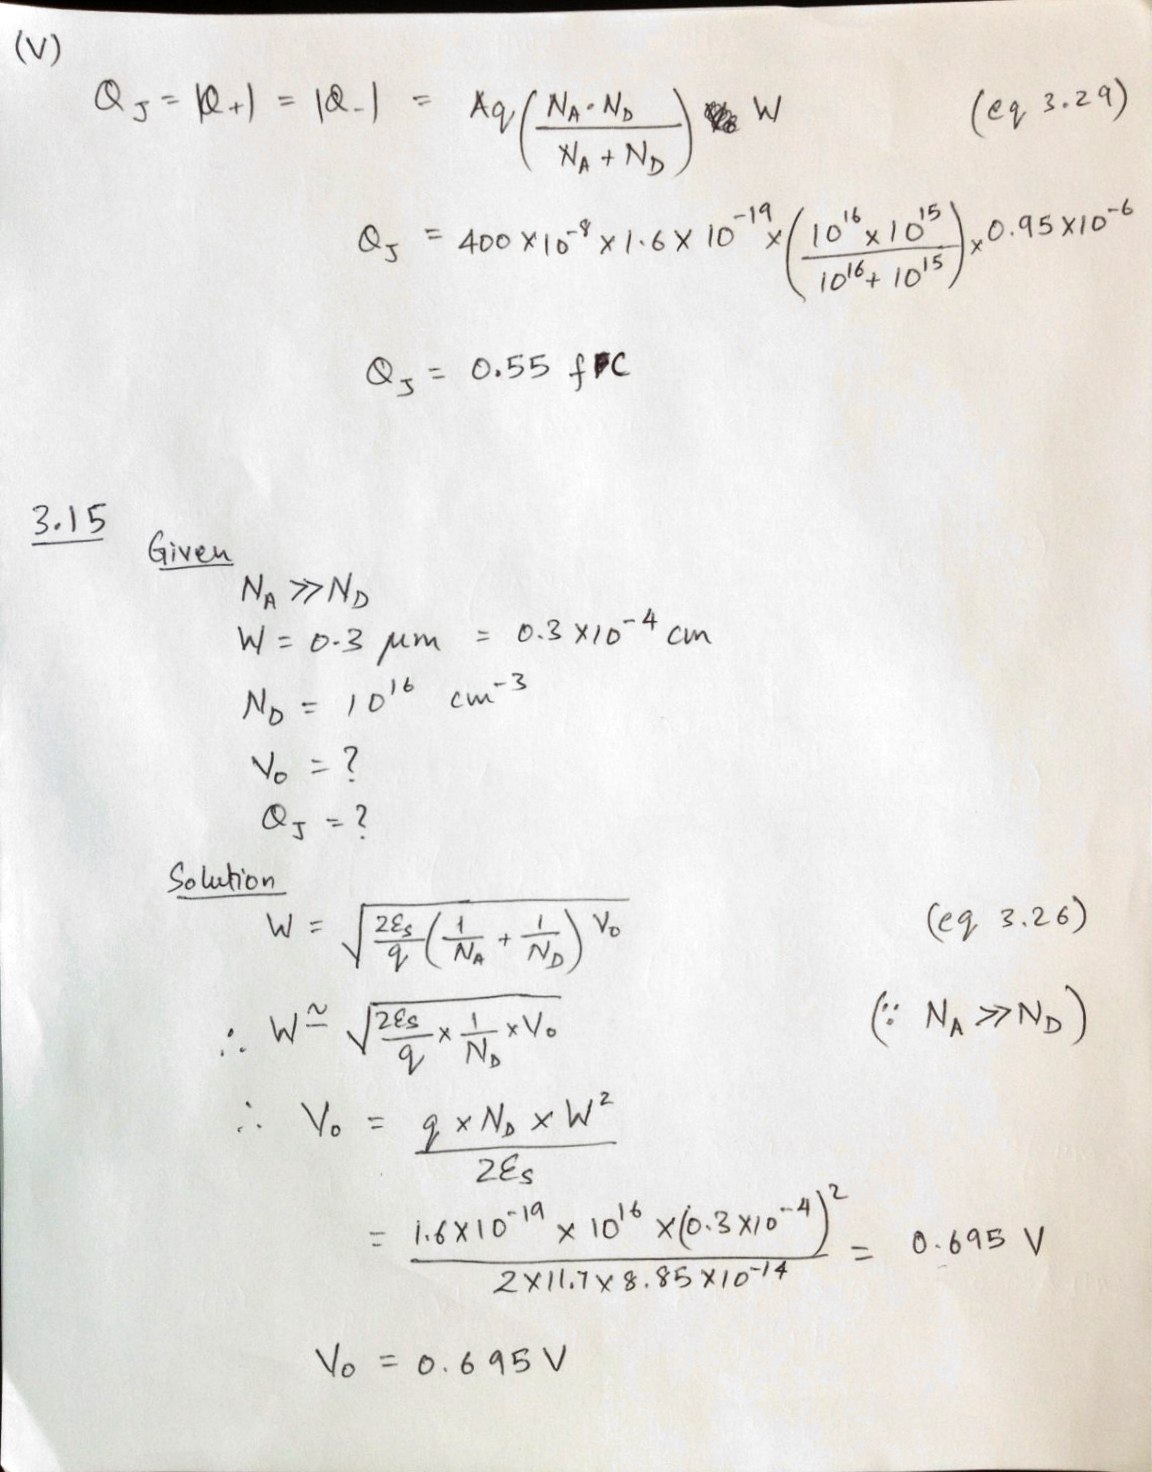 (V)
Q_J = |Q+| = |Q-| = Aq (N_A · N_D / N_A + N_D) W (eq 3.29)
Q_J = 400 × 10^-8 × 1.6 × 10^-19 × (10^16 × 10^15 / 10^16 + 10^15) × 0.95 × 10^-6
Q_J = 0.55 fC
3.15
Given
N_A >> N_D
W = 0.3 μm = 0.3 × 10^-4 cm
N_D = 10^16 cm^-3
V_o = ?
Q_J = ?
Solution
W = √(2Es/q (1/N_A + 1/N_D) V_o) (eq 3.26)
∴ W ≃ √(2Es/q × 1/N_D × V_o) (∵ N_A >> N_D)
∴ V_o = q × N_D × W² / 2Es
= 1.6 × 10^-19 × 10^16 × (0.3 × 10^-4)² / 2 × 11.7 × 8.85 × 10^-14 = 0.695 V
V_o = 0.695 V